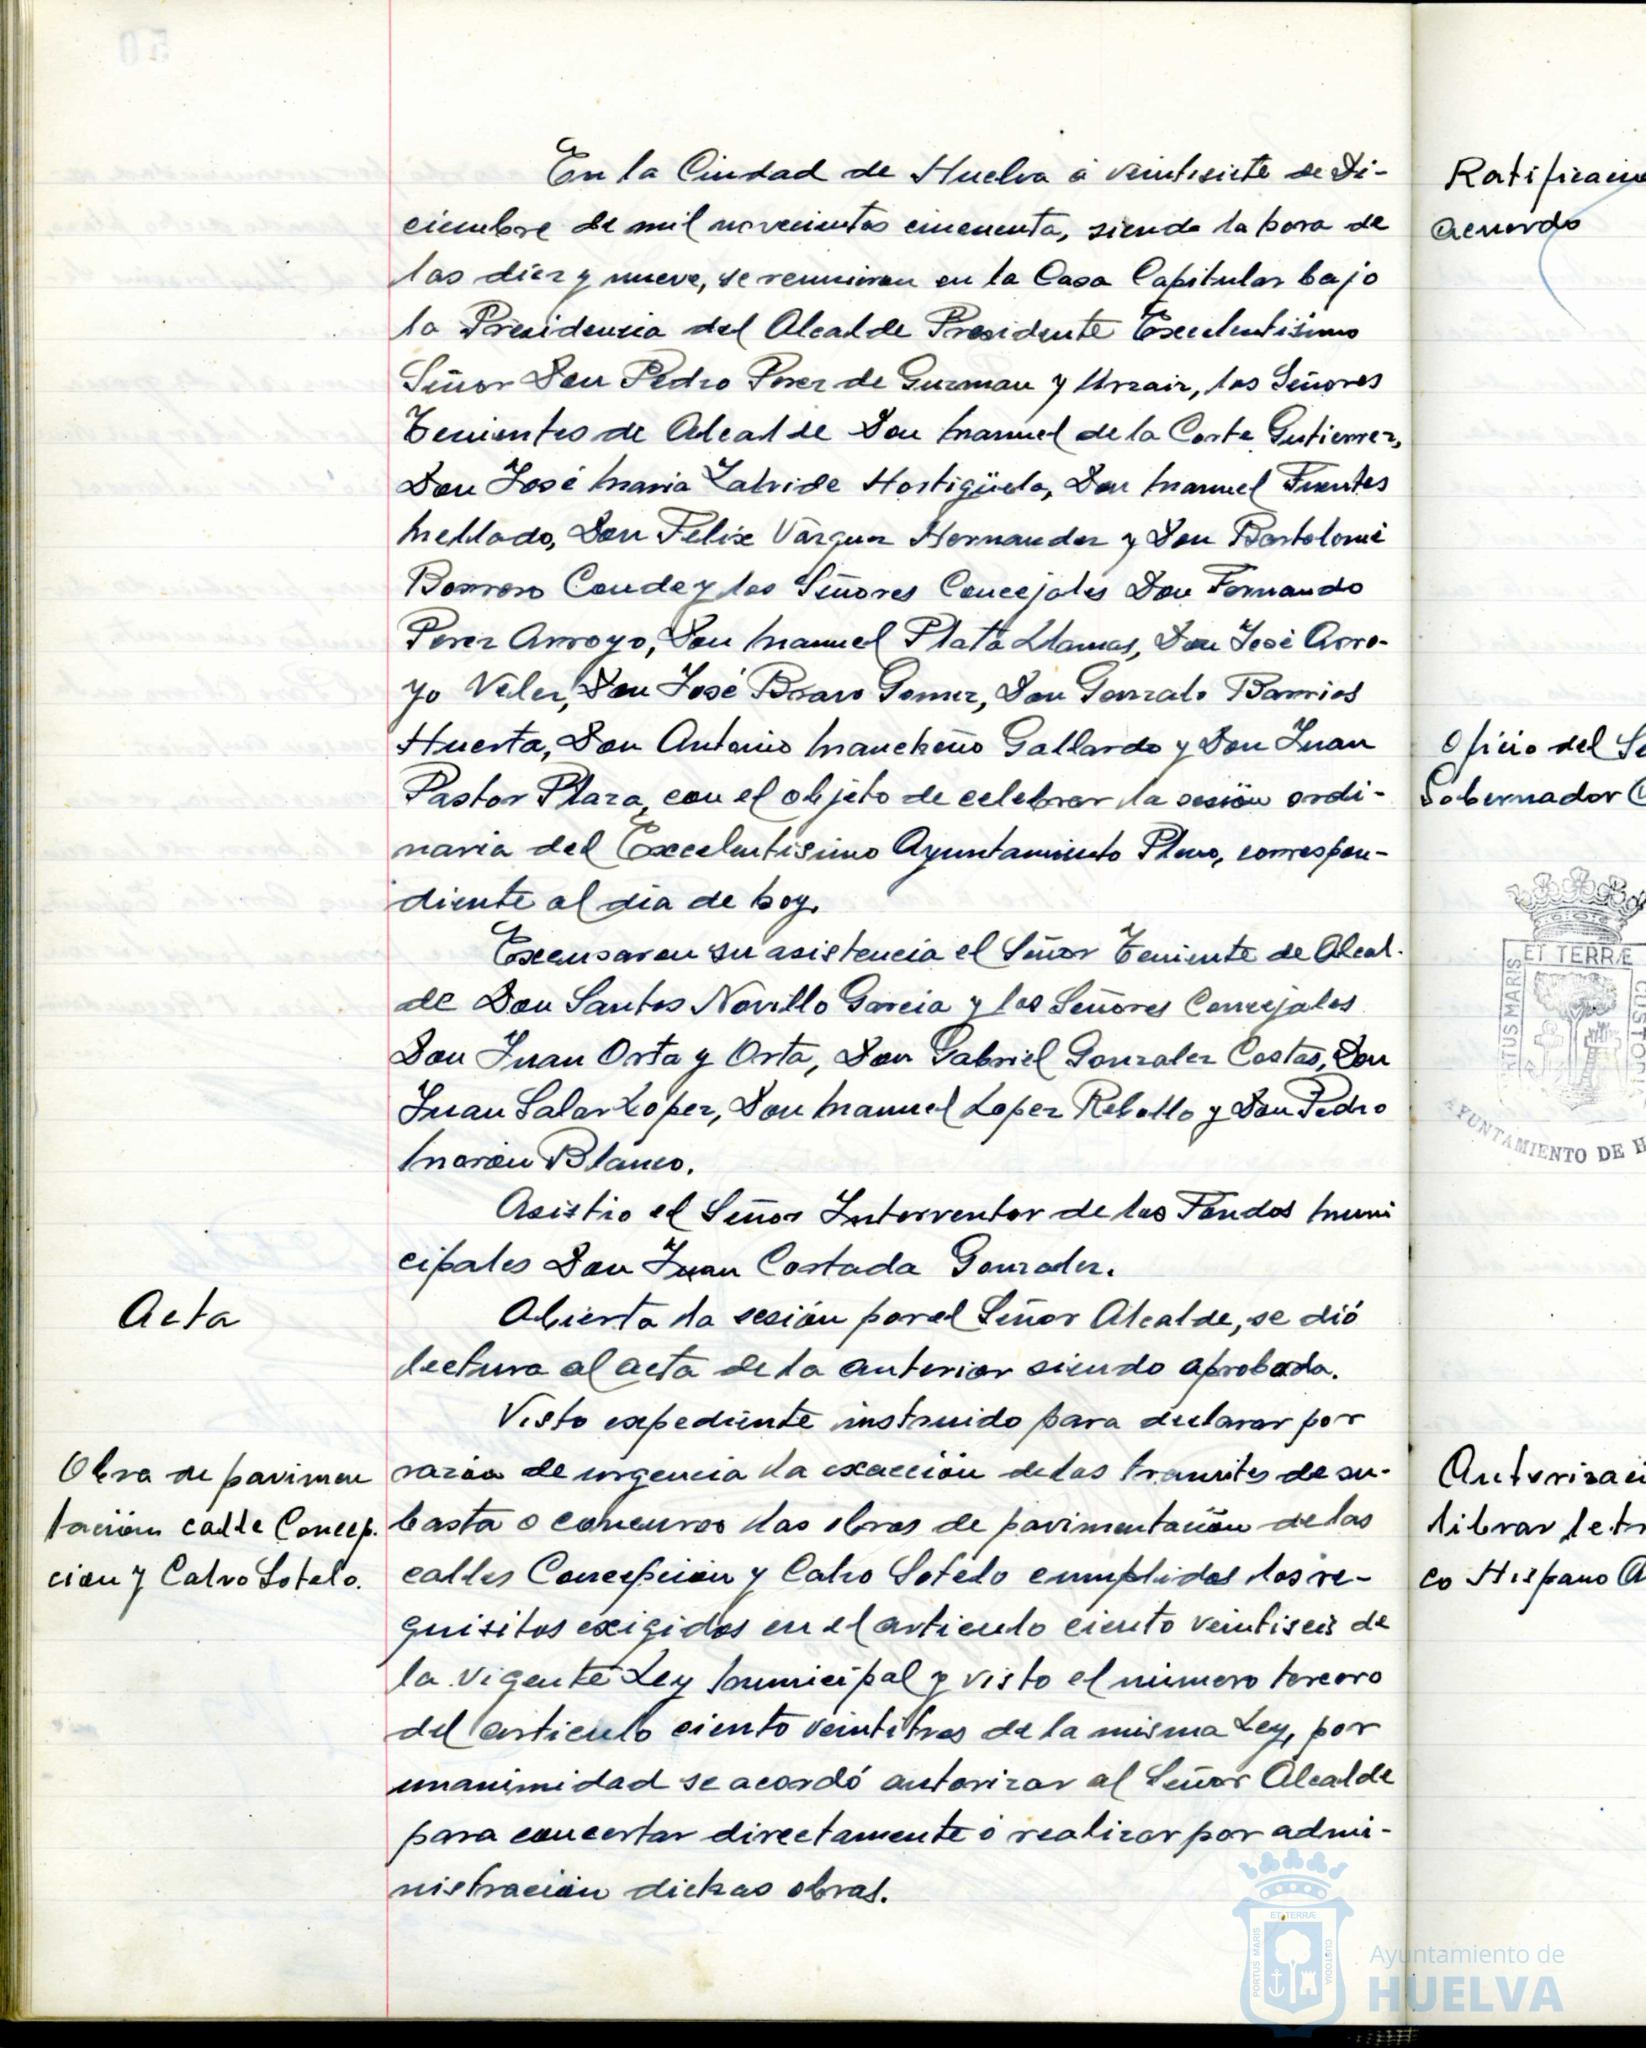 En la Ciudad de Huelva á veintisiete de Di-
ciembre de mil novecientos cincuenta, siendo la hora de
las diez y nueve, se reunieron en la Casa Capitular bajo
la Presidencia del Alcalde Presidente Excelentísimo
Señor Don Pedro Perez de Guzman y Urzaiz, los Señores
Tenientes de Alcalde Don Manuel de la Corte Gutierrez,
Don José Maria Zalvide Hortigüela, Don Manuel Fuentes
Mellado, Don Felix Vázquez Hernandez y Don Bartolomé
Borrero Conde y los Señores Concejales Don Fernando
Perez Arroyo, Don Manuel Plata Llamas, Don José Arro-
yo Velez, Don José Bravo Gomez, Don Gonzalo Barrios
Huerta, Don Antonio Mancheño Gallardo y Don Juan
Pastor Plaza, con el objeto de celebrar la sesión ordi-
naria del Excelentisimo Ayuntamiento Pleno, correspon-
diente al día de hoy.
Excusaron su asistencia el Señor Teniente de Alcal-
de Don Santos Novillo Garcia y los Señores Concejales
Don Juan Orta y Orta, Don Gabriel Gonzalez Costas, Don
Juan Salar Lopez, Don Manuel Lopez Rebollo y Don Pedro
Morón Blanco.
Asistio el Señor Interventor de los Fondos Muni
cipales Don Juan Costada Gonzalez.
Acta
Abierta la sesión por el Señor Alcalde, se dió
lectura al acta de la anterior siendo aprobada.
Obra de pavimen
tación calle Concep-
cion y Calvo Sotelo.
Visto expediente instruido para declarar por
razón de urgencia la exacción de los tramites de su-
basta o concurso las obras de pavimentación de las
calles Concepción y Calvo Sotelo cumplidos los re-
quisitos exigidos en el articulo ciento veintiseis de
la vigente Ley Municipal y visto el número tercero
del articulo ciento veintitres de la misma Ley, por
unanimidad se acordó autorizar al Señor Alcalde
para concertar directamente ó realizar por admi-
nistración dichas obras.
Ratificacion
acuerdo
Oficio del Se
Gobernador C
ET TERRÆ
PORTUS MARIS
CUSTODIA
AYUNTAMIENTO DE H
Autorizaci
librar letr
co Hispano A
ET TERRÆ
PORTUS MARIS
CUSTODIA
Ayuntamiento de
HUELVA